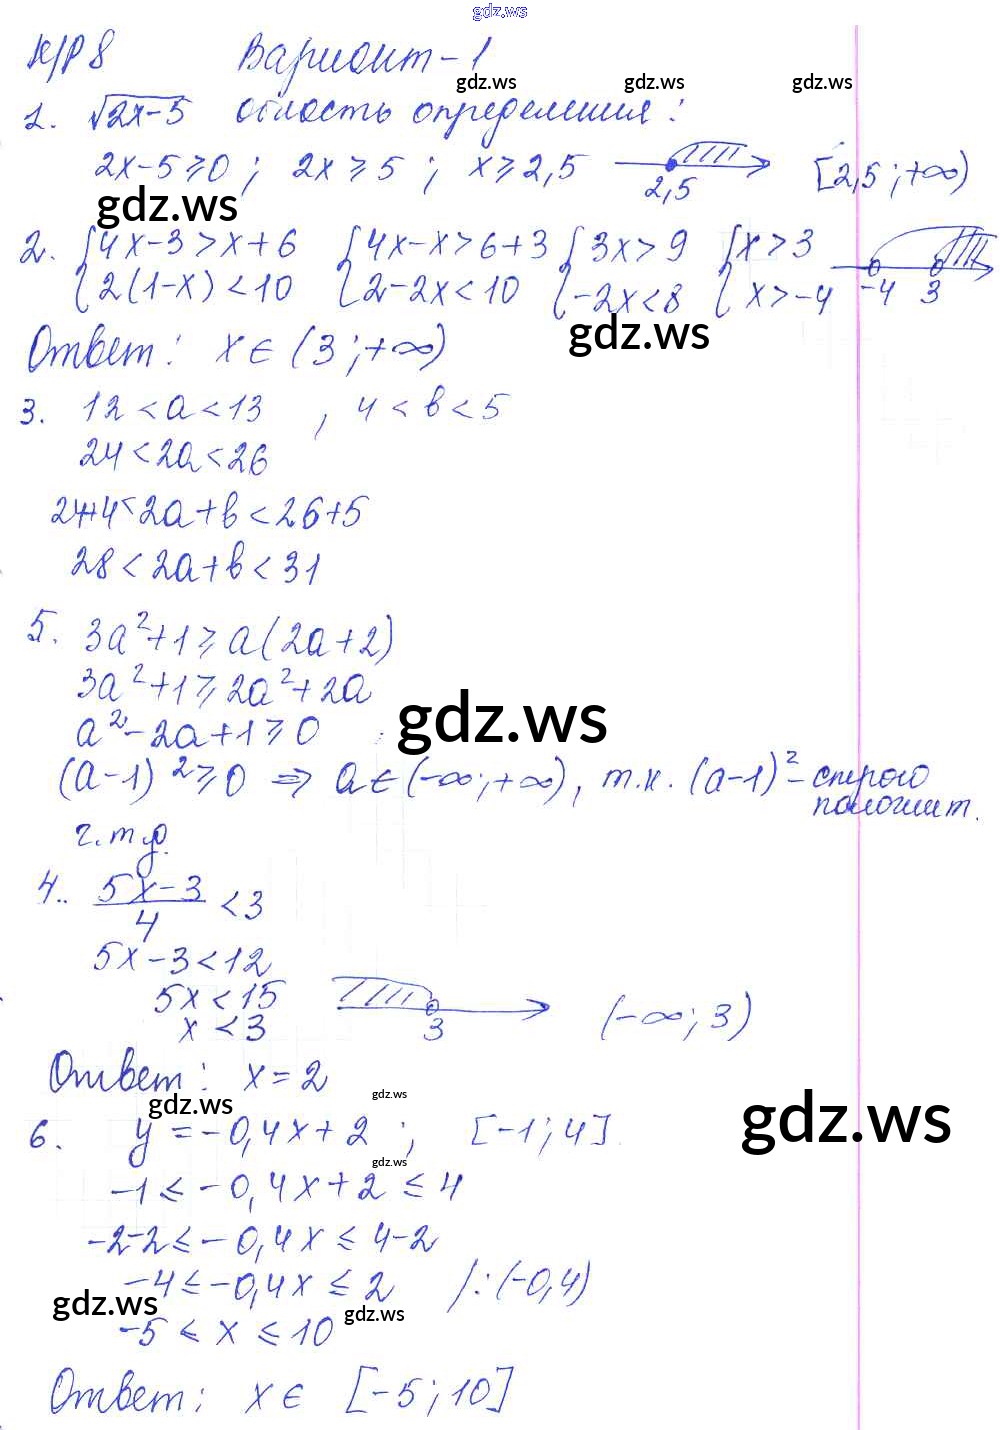 gdz.ws
К/Р 8 Вариант-1
gdz.ws gdz.ws gdz.ws
1. √2x-5 область определения:
2x-5⩾0; 2x⩾5; x⩾2,5 2,5 [2,5;+∞)
gdz.ws
2. {4x-3>x+6 {4x-x>6+3 {3x>9 {x>3
{2(1-x)<10 {2-2x<10 {-2x<8 {x>-4 -4 3
gdz.ws
Ответ: x∈(3;+∞)
3. 12<a<13, 4<b<5
24<2a<26
24+4<2a+b<26+5
28<2a+b<31
5. 3a²+1⩾a(2a+2)
3a²+1⩾2a²+2a
gdz.ws
a²-2a+1⩾0
(a-1)²⩾0 ⇒ a∈(-∞;+∞), т.к. (a-1)²- строго
положит.
ч.т.д.
4. (5x-3)/4 <3
5x-3<12
5x<15
x<3 3 (-∞;3)
Ответ: x=2
gdz.ws gdz.ws gdz.ws
6. y=-0,4x+2; [-1;4].
gdz.ws
-1≤-0,4x+2≤4
-2-2≤-0,4x≤4-2
-4≤-0,4x≤2 /:(-0,4)
gdz.ws gdz.ws
-5≤x≤10
Ответ: x∈ [-5;10]